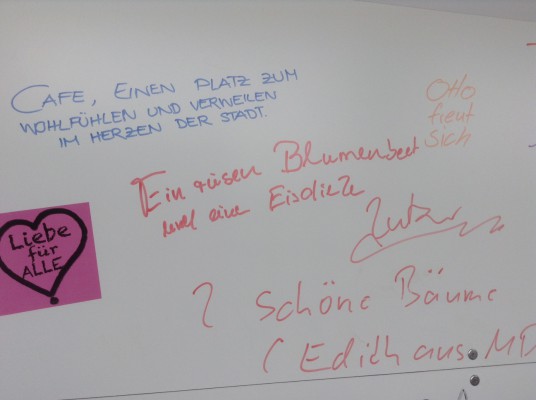 CAFE, EINEN PLATZ ZUM
WOHLFÜHLEN UND VERWEILEN
IM HERZEN DER STADT.
Otto
freut
sich
Ein riesen Blumenbeet
und eine Eisdiele
Liebe
für
ALLE
? Schöne Bäume
(Edith aus MD